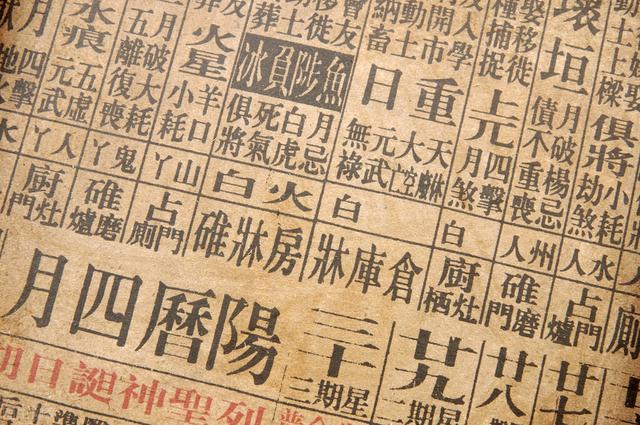 土上樑
俱將
小耗
劫煞
水人
占門爐
壞垣
月破楊忌
債不重喪
州人
碓磨門
娶移徙
種捕捉
上元
四擊
月煞
白
廚灶栖
人學
開市
動土
納畜
重日
大空
元武
無祿
白
倉庫牀
友
移徙
魚陟負冰
月忌
白虎
死氣
俱將
火白
房牀碓
火星
羊口
小耗
山丫
占門廁
月破大耗
五離復喪
鬼丫
碓磨爐
水痕
五虛
元武
人丫
廚灶門
月
四擊
水
廿七
廿八
廿九
星期二
三十
星期三
陽曆四月
列聖神誕日期